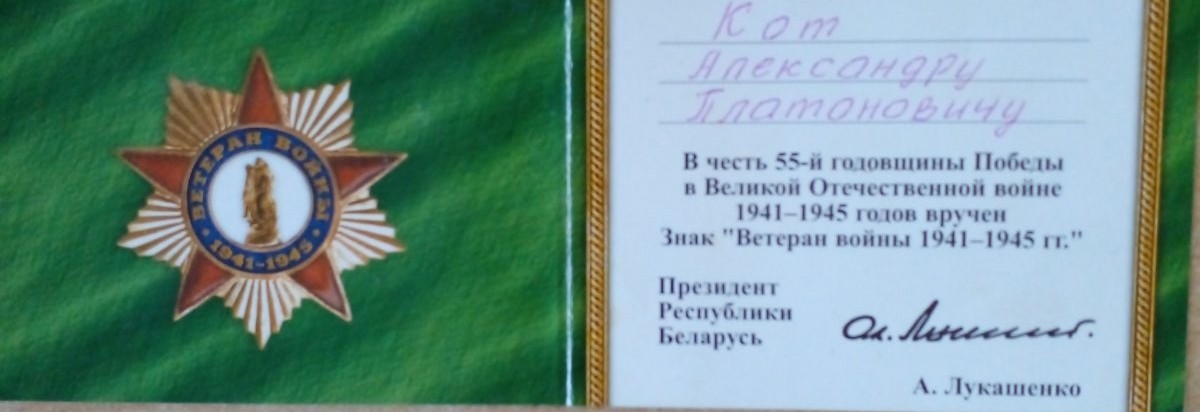 ВЕТЕРАН ВОЙНЫ
1941-1945
Кот
Александру
Платоновичу
В честь 55-й годовщины Победы
в Великой Отечественной войне
1941–1945 годов вручен
Знак "Ветеран войны 1941–1945 гг."
Президент
Республики
Беларусь
А. Лукашенко